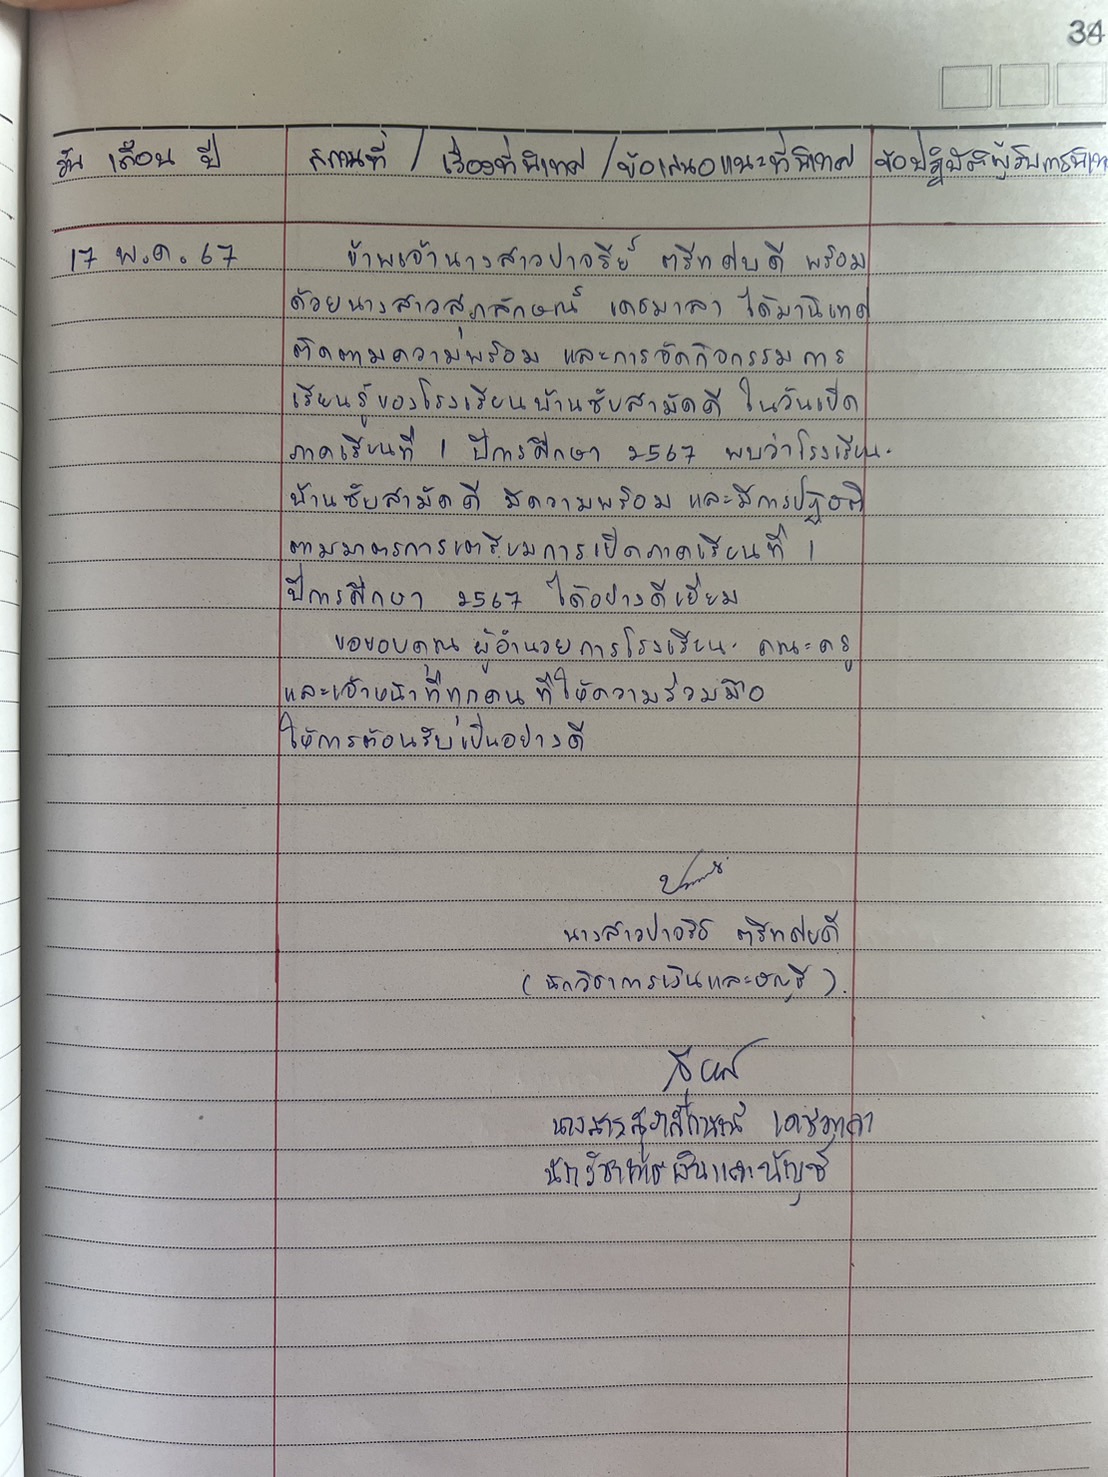 34
วัน เดือน ปี สถานที่ / เรื่องที่นิเทศ / ข้อเสนอแนะที่นิเทศ ข้อปฏิบัติผู้รับการนิเทศ
17 พ.ค. 67 ข้าพเจ้านางสาวปาจรีย์ ตรีทศบดี พร้อม
ด้วยนางสาวสุภลักษณ์ เดชมาลา ได้มานิเทศ
ติดตามความพร้อม และการจัดกิจกรรมการ
เรียนรู้ของโรงเรียนบ้านซับสามัคคี ในวันเปิด
ภาคเรียนที่ 1 ปีการศึกษา 2567 พบว่าโรงเรียน
บ้านซับสามัคคี มีความพร้อม และมีการปฏิบัติ
ตามมาตรการเตรียมการเปิดภาคเรียนที่ 1
ปีการศึกษา 2567 ได้อย่างดีเยี่ยม
ขอขอบคุณ ผู้อำนวยการโรงเรียน คณะครู
และเจ้าหน้าที่ทุกคน ที่ให้ความร่วมมือ
ให้การต้อนรับเป็นอย่างดี
นางสาวปาจรีย์ ตรีทศบดี
(นักวิชาการเงินและบัญชี).
นางสาวสุภลักษณ์ เดชมาลา
นักวิชาการเงินและบัญชี